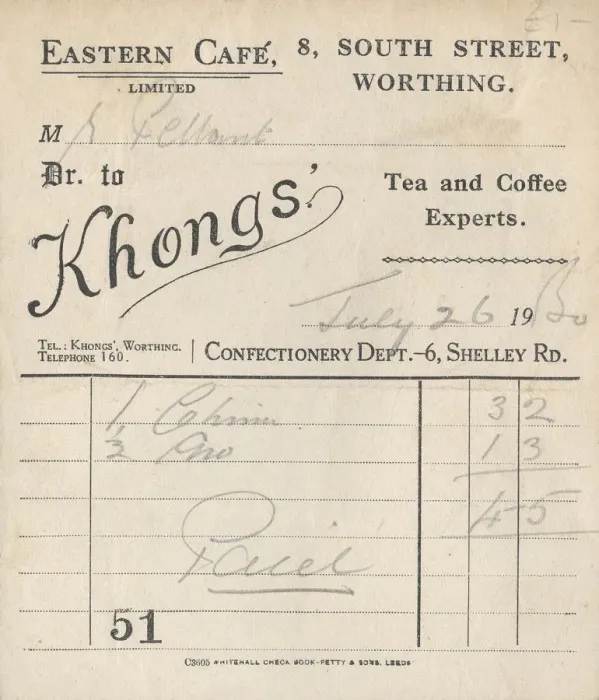 £1-
EASTERN CAFÉ, 8, SOUTH STREET,
LIMITED WORTHING.
Mr Pellant
Dr. to
Khongs'
Tea and Coffee
Experts.
July 26 1930
TEL.: KHONGS', WORTHING.
TELEPHONE 160.
CONFECTIONERY DEPT.-6, SHELLEY RD.
1 China 3 2
1 3
4 5
Paid
51
C3605 WHITEHALL CHECK BOOK-PETTY & SONS, LEEDS